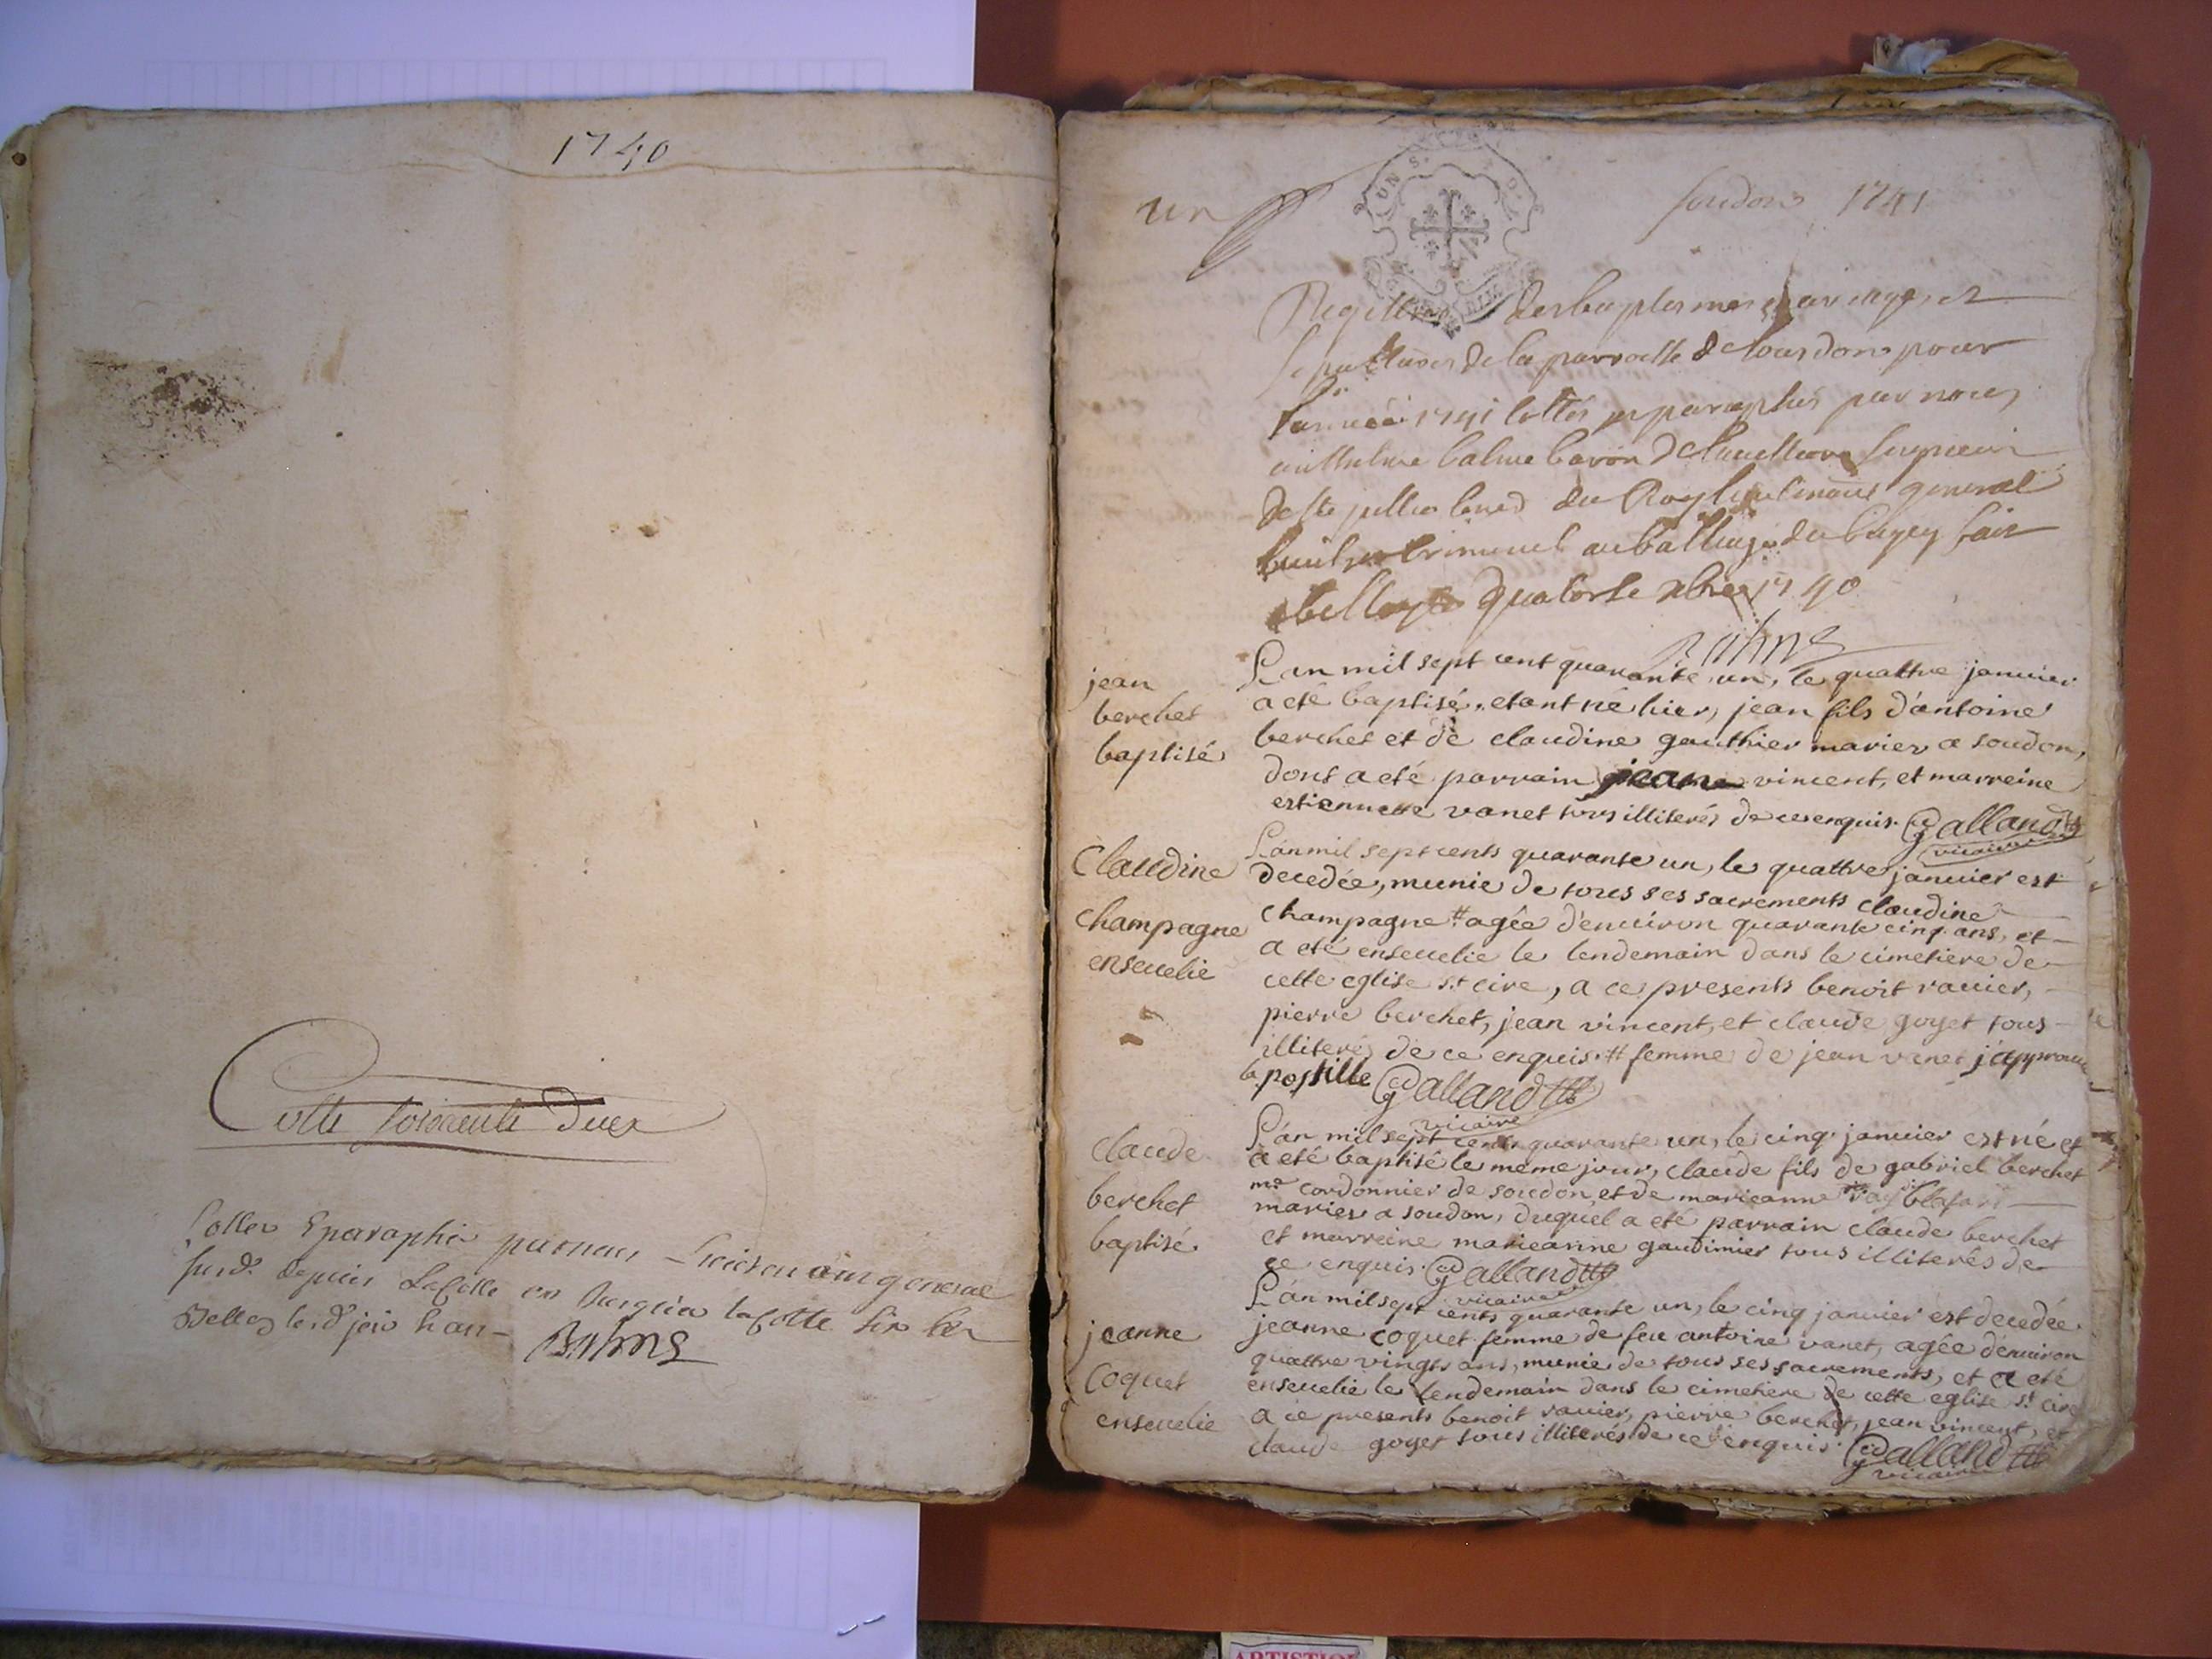 1740
Cotte soixante deux
Cottes & paraphés par nous general
depuis la cotte un jusqu'a la cotte
Belley
Balme
un
soudon 1741
Registre des baptesmes mariages et
sepultures de la parroisse de soudon pour
l'année 1741 cottés et paraphés par nous
anthelme balme baron de seigneur
de ste jullie cons.er du Roy lieutenant general
civil et criminel au balliage du bugey fait
a belley le quatorse xbre 1740
Balme
jean
berchet
baptisé
L'an mil sept cent quarante un, le quattre janvier
a eté baptisé, etant né hier, jean fils d'antoine
berchet et de claudine gauthier mariez a soudon,
dont a eté parrain jean vincent, et marreine
estiennette vanet tous illiterés de ce enquis. Galland
vicaire
Claudine
champagne
ensevelie
L'an mil sept cents quarante un, le quattre janvier est
decedée, munie de tous ses sacrements claudine
champagne # agée d'environ quarante cinq ans, et
a eté ensevelie le lendemain dans le cimetiere de
cette eglise s.t cire, a ce presents benoit ravier,
pierre berchet, jean vincent, et claude goyet tous
illiterés de ce enquis. # femme de jean vanet j'approuve
la postille Galland
vicaire
claude
berchet
baptisé
L'an mil sept cents quarante un, le cinq janvier est né et
a eté baptisé le meme jour, claude fils de gabriel berchet
m.e cordonnier de soudon, et de marieanne
mariez a soudon, duquel a eté parrain claude berchet
et marreine marieanne gaudimier tous illiterés de
ce enquis. Galland
vicaire
jeanne
coquet
ensevelie
L'an mil sept cents quarante un, le cinq janvier est decedée
jeanne coquet femme de feu antoine vanet, agée d'environ
quattre vingts ans, munie de tous ses sacrements, et a eté
ensevelie le lendemain dans le cimetiere de cette eglise s.t cire
a ce presents benoit ravier, pierre berchet, jean vincent, et
claude goyet tous illiterés de ce enquis. Galland
vicaire